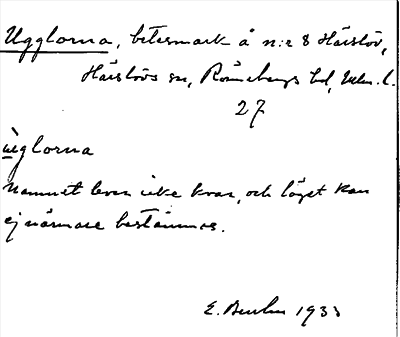 Ugglorna, betesmark å n:r 8 Härslöv,
Härslövs sn, Rönnebergs hd, Malm. l.
27
ùglorna
Namnet lever icke kvar, och läget kan
ej närmare bestämmas.
E. 1933